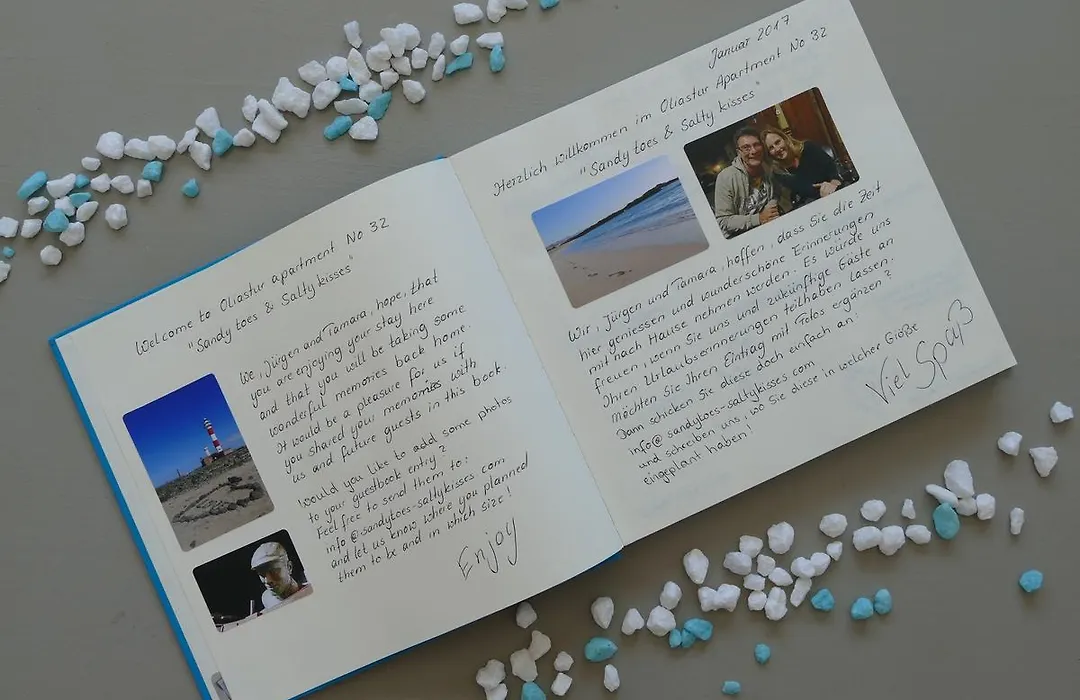 Welcome to Oliastur apartment No 32
"Sandy toes & Salty kisses"
We, Jürgen and Tamara, hope, that
you are enjoying your stay here
and that you will be taking some
wonderful memories back home.
It would be a pleasure for us if
you shared your memories with
us and future guests in this book.
Would you like to add some photos
to your guestbook entry?
Feel free to send them to:
info@sandytoes-saltykisses.com
and let us know where you planned
them to be and in which size!
Enjoy
Januar 2017
Herzlich willkommen im Oliastur Apartment No 32
"Sandy toes & Salty kisses"
Wir, Jürgen und Tamara, hoffen, dass Sie die Zeit
hier geniessen und wunderschöne Erinnerungen
mit nach Hause nehmen werden. Es würde uns
freuen, wenn Sie uns und zukünftige Gäste an
Ihren Urlaubserinnerungen teilhaben lassen.
Möchten Sie Ihren Eintrag mit Fotos ergänzen?
Dann schicken Sie diese doch einfach an:
info@sandytoes-saltykisses.com
und schreiben uns, wo Sie diese in welcher Größe
eingeplant haben!
Viel Spaß